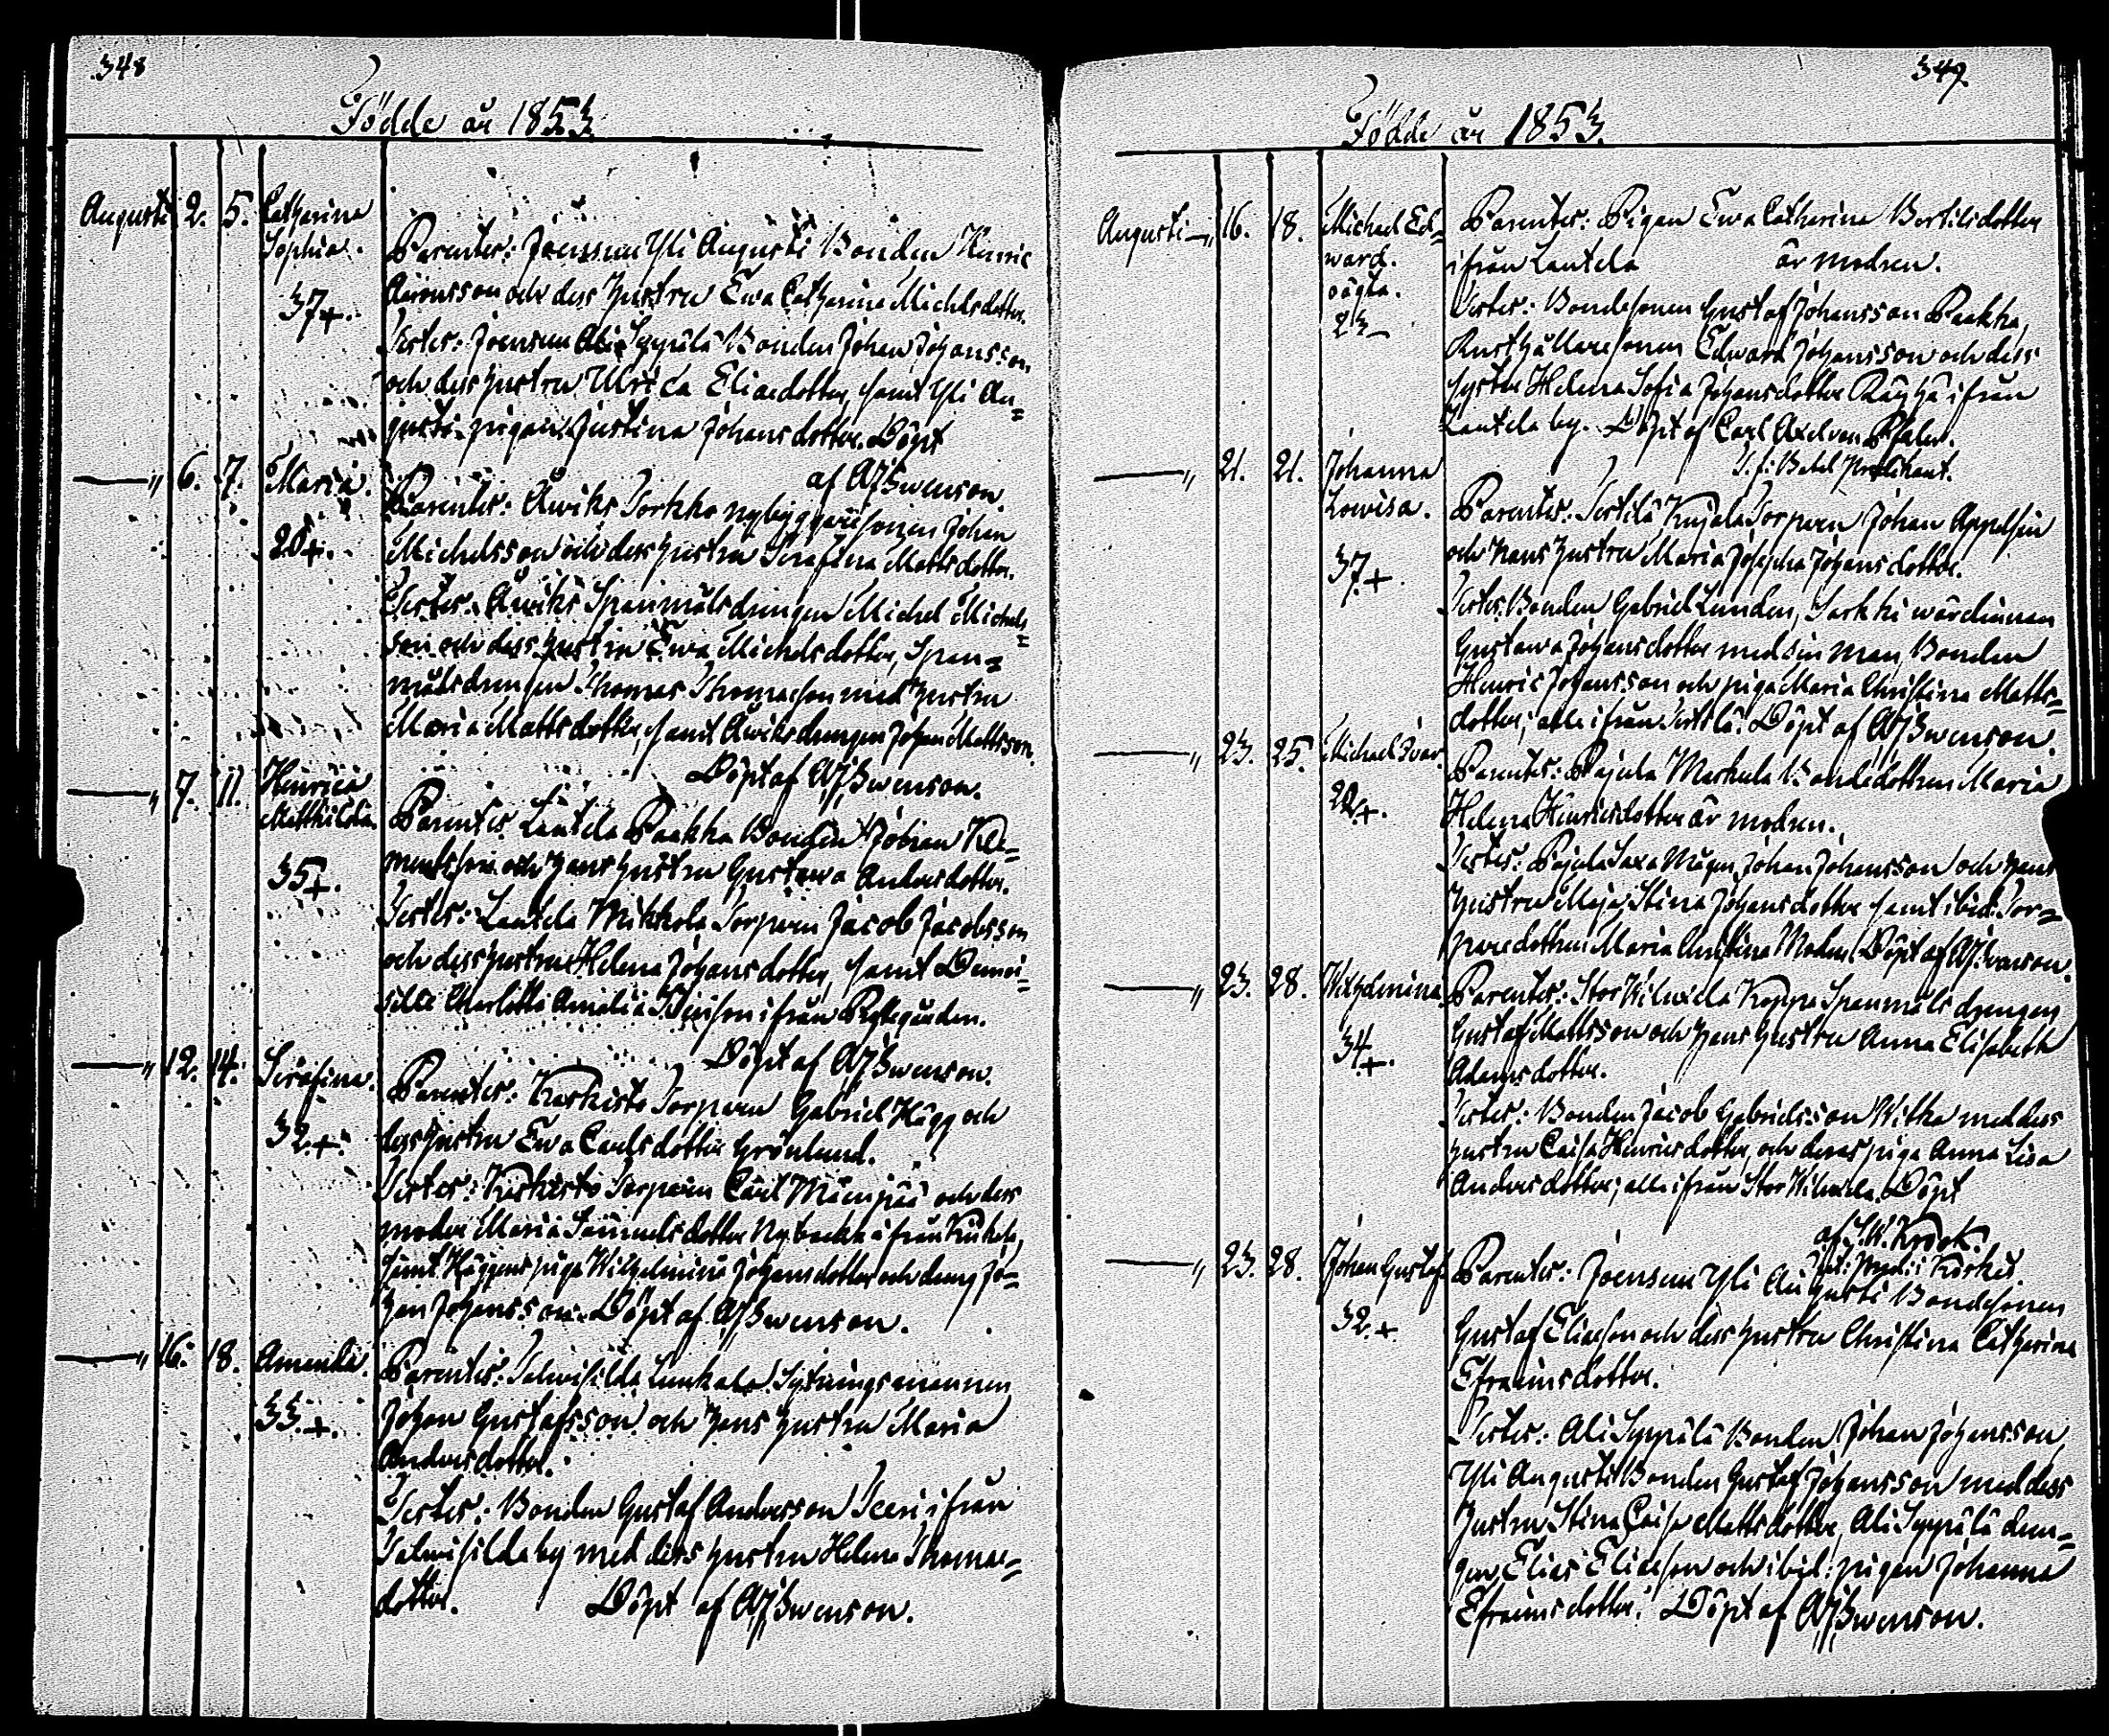 348
Födde år 1853.
Augusti 2. 5. Catharina
Sophia.
37+.
Parenter: Joensuu Yli Augusti Bonden Henric
Aaronsson och dess hustru Ewa Catharina Michelsdotter.
Tester: Joensuu Ali Seppälä Bonden Johan Johansson
och dess hustru Ulrica Eliaedotter, samt Yli Au=
gusti pigan Justina Johansdotter. Döpt
af AJSwenson.
—„ 6. 7. Maria.
20+.
Parenter: Äwiks Torkko nybyggaresonen Johan
Michelsson och dess hustru Serafina Mattsdotter.
Tester: Äwiks Spanmålsdrengen Michel Michels=
son och dess hustru Ewa Michelsdotter, Span=
målsdrengen Thomas Thomasson med hustru
Maria Mattsdotter, samt Äwiks drengen Johan Mattsson.
Döpt af AJSwenson.
—„ 7. 11. Henrica
Mathilda.
35+.
Parenter: Lautela Paakka Bonden Johan Kle=
mentsson och hans hustru Gustawa Andersdotter.
Tester: Lautela Mikkola Torparen Jacob Jacobsson
och dess hustru Helena Johansdotter, samt Demoi=
selle Charlotta Amalia ifrån
Döpt af AJSwenson.
—„ 12. 14. Serafina.
32+.
Parenter: Karkisto Torparen Gabriel Hägg och
dess hustru Ewa Carlsdotter Grönlund.
Tester: Karkisto Torparen Carl Mäenpää och dess
moder Maria Samuelsdotter Nybacka ifrån
samt Häggens piga Wilhelmina Johansdotter och dreng Jo=
han Johansson. Döpt af AJSwenson.
—„ 16. 18. Amanda.
33+.
Parenter: Talwisilda Sytningsmannen
Johan Gustafsson och hans hustru Maria
Andersdotter.
Tester: Bonden Gustaf Andersson Teeri ifrån
Talwisilda by med dess hustru Helena Thomae=
dotter. Döpt af AJSwenson.
349
Födde år 1853.
Augusti—„ 16. 18. Michael Ed=
ward.
oägta.
23—
Parenter: Pigan Ewa Catharina Bertilsdotter
ifrån Lautela är modren.
Tester: Bondesonen Gustaf Johansson Paakka,
Rusthållaresonen Edward Johansson och dess
syster Helena Sofia Johansdotter ifrån
Lautela by. Döpt af Carl Axel von Pfaler.
—„ 21. 21. Johanna
Lowisa.
37+.
Parenter: Tertilä Torparen Johan Appelsin
och hans hustru Maria Josepha Johansdotter.
Tester: Bonden Gabriel Lunden, Sarkki wärdinnan
Gustawa Johansdotter med sin man, Bonden
Henric Johansson och piga Maria Christina Matts=
dotter; alla ifrån Tertilä. Döpt af AJSwenson.
—„ 23. 25. Michael Iwar.
22+.
Parenter: Pajula Markula Bondedottren Maria
Helena Henricsdotter är modren.
Tester: Pajula Saxa Mågen Johan Johansson och hans
hustru Maja Stina Johansdotter samt ibid: Tor=
paredottren Maria Christina Döpt af AJSwenson.
—„ 23. 28. Wilhelmina
34+.
Parenter: Stor Wilwiela Koppa Spanmåls drengen
Gustaf Mattsson och hans hustru Anna Elisabeth
Adamsdotter.
Tester: Bonden Jacob Gabrielsson Witka med dess
hustru Caisa Henricsdotter, och deras piga Anna Lisa
Andersdotter; alla ifrån Stor Wilwiela. Döpt
af S.W. Krook.
—„ 23. 28. Johan Gustaf
32.+
Parenter: Joensuu Yli Augusti Bondesonen
Gustaf Eliaeson och dess hustru Christina Catharina
Efraimsdotter.
Tester: Ali Seppälä Bonden Johan Johansson,
Yli Augusti Bonden Gustaf Johansson med dess
hustru Stina Caisa Mattsdotter, Ali Seppälä dren=
gen Elias Eliaeson och ibid: pigan Johanna
Efraimsdotter. Döpt af AJSwenson.